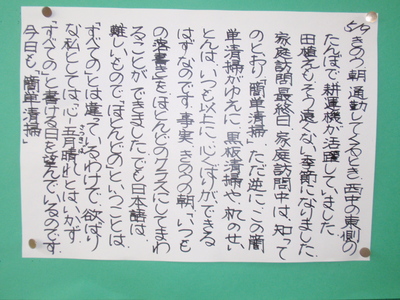 5/9 きのう朝、通勤してくるとき、西中の東側の
たんぼで耕運機が活躍していました。
田植えもそう遠くない季節になりました。
家庭訪問最終日、家庭訪問中は、知って
のとおり「簡単清掃」。ただ逆に、この簡
単清掃がゆえに、黒板清掃や机のせい
とんは、いつも以上に心くばりができる
はずなのです。事実、きのうの朝、いつも
の落書きをほとんどのクラスにしてまわ
ることができました。でも日本語は
難しいもので「ほとんどの」ということは、
「すべての」とは違っているわけで、欲ばり
な私としては、“心五月晴れ”とはいかず
「すべての」と書ける日を望んでいるのです。
今日も「簡単清掃」